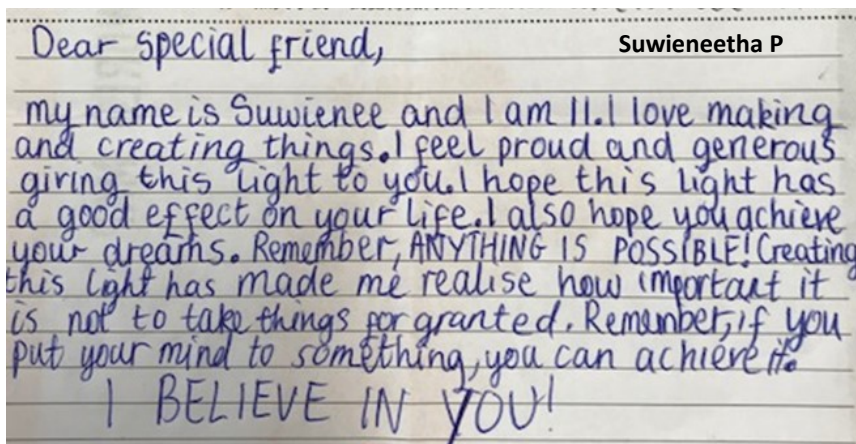 Dear special friend,
Suwieneetha P
my name is Suwienee and I am 11. I love making
and creating things. I feel proud and generous
giving this light to you. I hope this light has
a good effect on your life. I also hope you achieve
your dreams. Remember, ANYTHING IS POSSIBLE! Creating
this light has made me realise how important it
is not to take things for granted. Remember, if you
put your mind to something, you can achieve it.
I BELIEVE IN YOU!